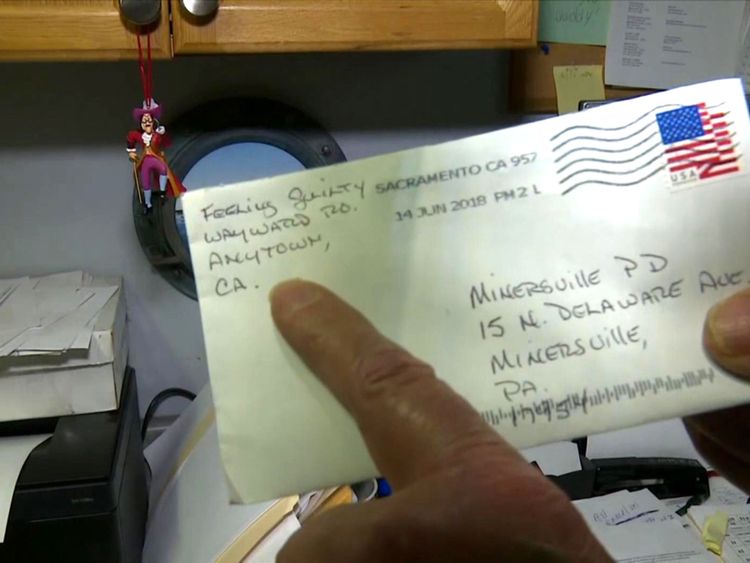 FEELING GUILTY
WAYWARD RD.
ANYTOWN,
CA.
SACRAMENTO CA 957
14 JUN 2018 PM 2 L
USA
MINERSVILLE PD
15 N. DELAWARE AVE.
MINERSVILLE,
PA.
17954